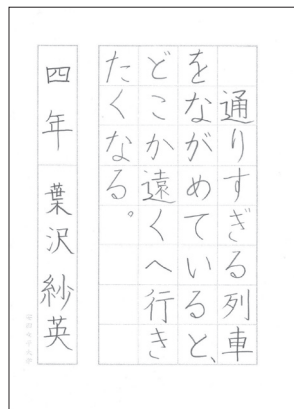 通りすぎる列車
をながめていると、
どこか遠くへ行き
たくなる。
四年 葉沢紗英